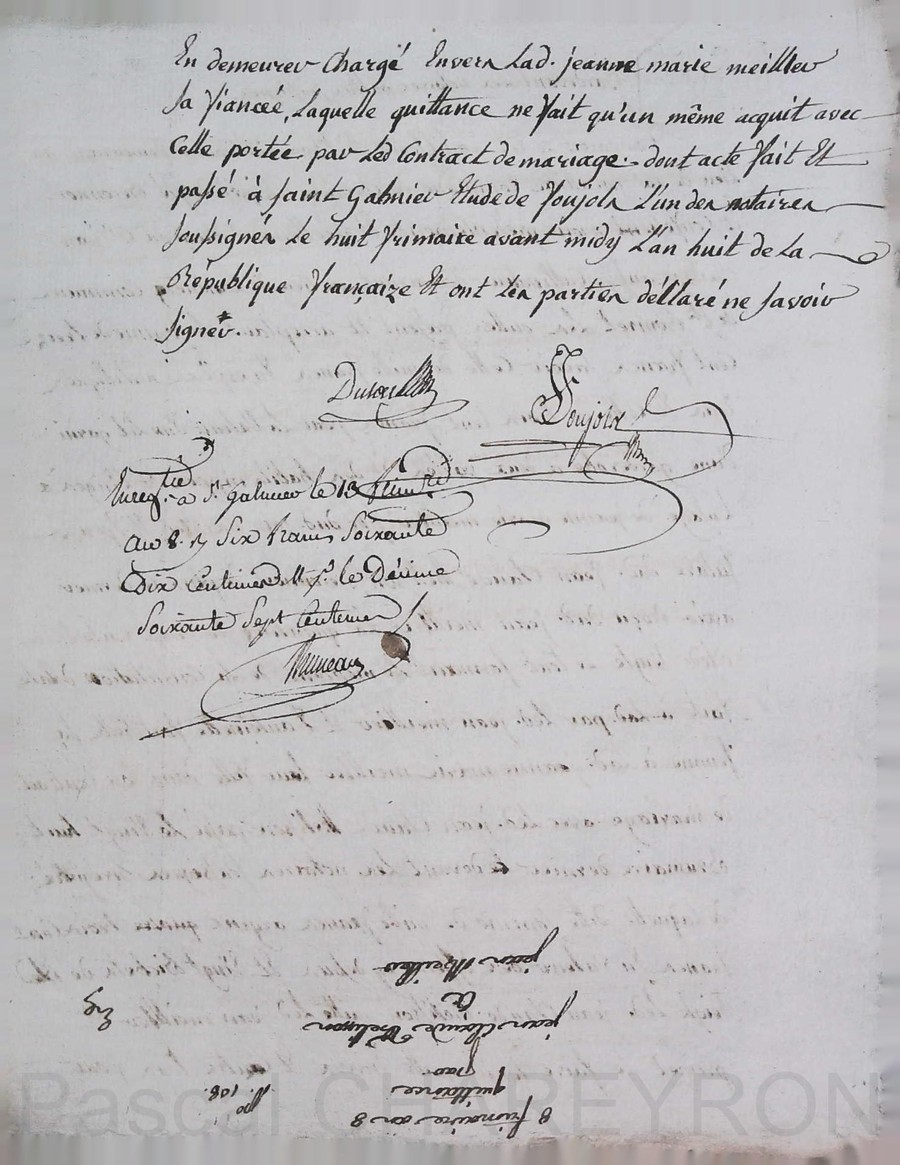 En demeurer Chargé Envers Lad. jeanne marie meiller
sa fiancée, Laquelle quittance ne fait qu'un même acquit avec
Celle portée par Led Contract de mariage. dont acte fait Et
passé à saint Galmier Etude de Poujols L'un des notaires
soussignés Le huit frimaire avant midy L'an huit de La
République françaize Et ont Les parties déclaré ne savoir
signer.
Poujols
Enregtré à St. Galmier le 13 frimre
an 8. Six francs soixante
Dix Centimes le Décime
Soixante Sept Centimes
8 frimaire an 8
quittance
par
jean Claude
a
jean Meiller
No. 108.
Pascal CHAPEYRON